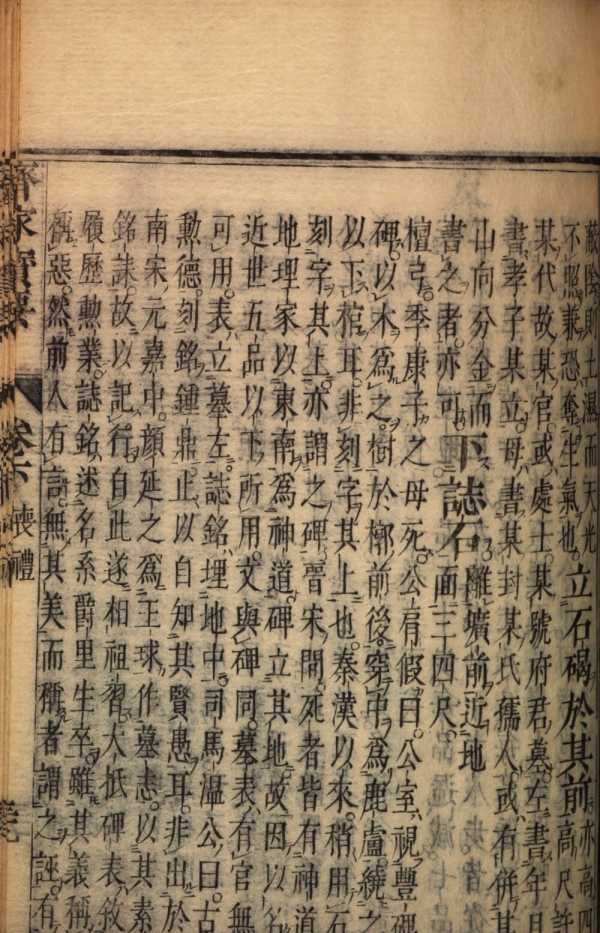 蔽陰則土濕而天光
不照兼恐奪生氣也
立石碣於其前
亦高四
高尺許
某代故某官或處士某號府君墓左書年月
書孝子某立母書某封某氏孺人或有併其
山向分金而
書之者亦可
下誌石
離壙前近地
面三四尺
檀弓季康子之母死公肩假曰公室視豐碑
碑以木爲之樹於槨前後穿中爲鹿盧繞之
以下棺耳非刻字其上也秦漢以來稍用石
刻字其上亦謂之碑晉宋間死者皆有神道
地理家以東南爲神道碑立其地故因以名
近世五品以下所用文與碑同墓表有官無
可用表立墓左誌銘埋地中司馬温公曰古
勲德刻銘鍾鼎止以自知其賢愚耳非出於
南宋元嘉中顔延之爲王球作墓志以其素
銘誄故以記行自此遂相祖習大抵碑表敘
履歷勲業誌銘述名系爵里生卒雖其義稱
稱惡然前人有言無其美而稱者謂之誣有
齊家寶要 卷六 喪禮